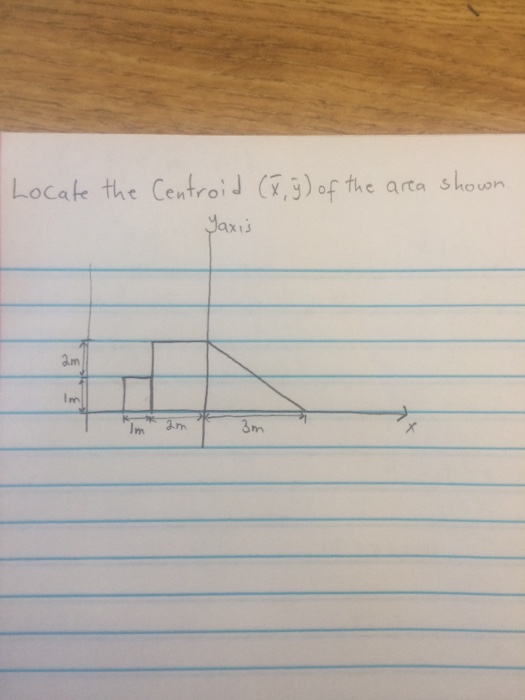 Locate the Centroid (x̄, ȳ) of the area shown
yaxis
2m
1m
1m 2m 3m
x